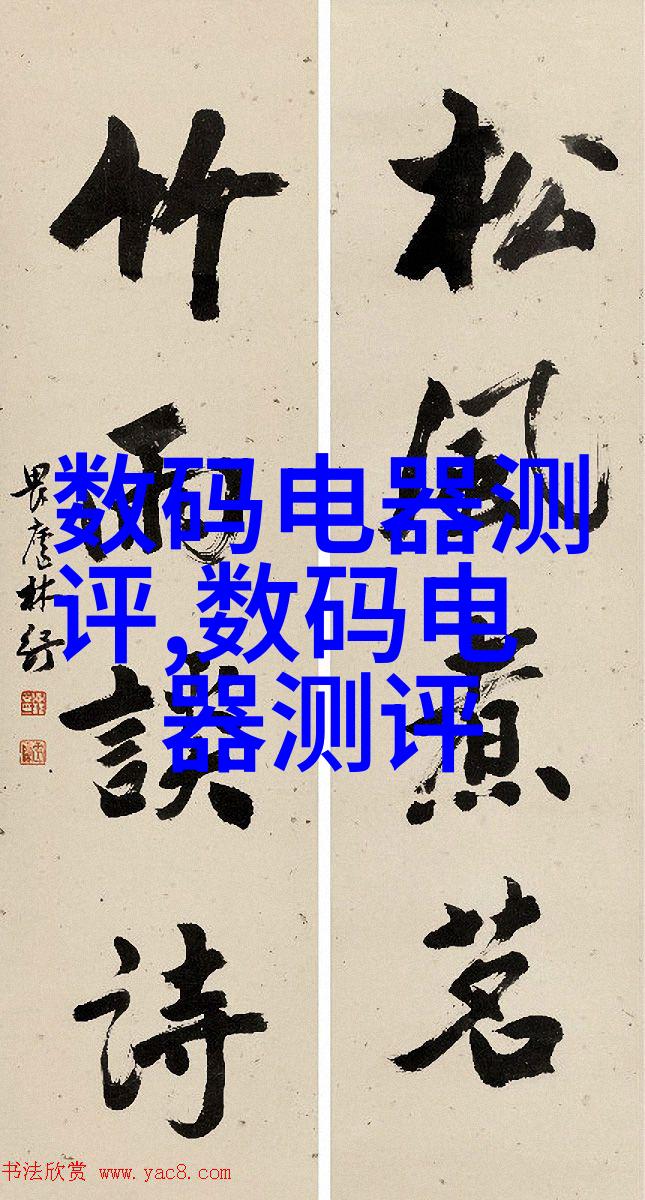 松風煮茗
竹雨談詩
畏廬林紓
数码电器测
评,数码电
器测评
书法欣赏 www.yac8.com